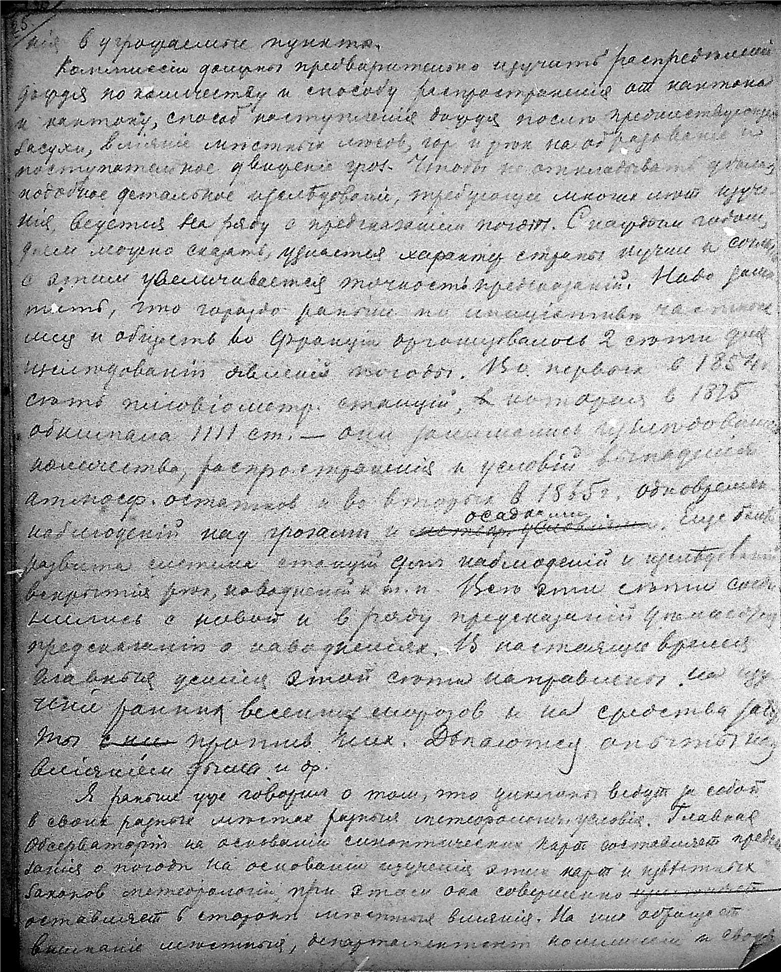 25
нія в угрожаемые пункты.
Коммиссіи должны предварительно изучить распредѣленіе
дождя по количеству и способу распространенія от кантона
к кантону, способ наступленія дождя послѣ предшествующей
засухи, вліяніе мѣстных лѣсов, гор и рѣк на образованіе и
поступательное движеніе гроз. Чтобы не откладывать
подобное детальное изслѣдованіе, требующее многих лѣт изуче-
нія, ведется на ряду с предсказаніем погоды. С каждым годом,
можно сказать, узнается характер страны лучше и
с этим увеличивается точность предсказаній. Надо замѣ
тить, что гораздо раньше по иниціативѣ частных
лиц и обществ во Франціи организовалось 2 сѣти для
изслѣдованій явленій погоды. Во первых в 1854 г.
сѣть плювіометр. станцій, которая в 1875
обнимала 1111 ст. — они занимались изслѣдованіем
количества, распространенія и условій выпаденія
атмосф. остатков и во вторых в 1865 г. одновремен
наблюденій над грозами и осадками. Еще была
развита система станцій для наблюденій и изслѣдованія
вскрытія рѣк, наводненій и т. п. Всѣ эти сѣти соеди
нились с новой и в ряду предсказаній
предсказаніи о наводненіях. В настоящее время
главныя усилія этой сѣти направлены на изу
ченій ранних весенних морозов и на средства
против них. Дѣлаются опыты над
вліяніем дыма и др.
Я раньше уже говорил о том, что циклоны ведут за собой
в своих разных мѣстах разныя метеорологич. условія. Главная
Обсерваторія на основаніи синоптических карт составляет предска
занія о погодѣ на основаніи изученія этих карт и извѣстных
законов метеорологіи, при этом она совершенно
оставляет в сторонѣ мѣстныя вліянія. На них обращает
вниманіе мѣстныя, департаментскія коммиссіи и